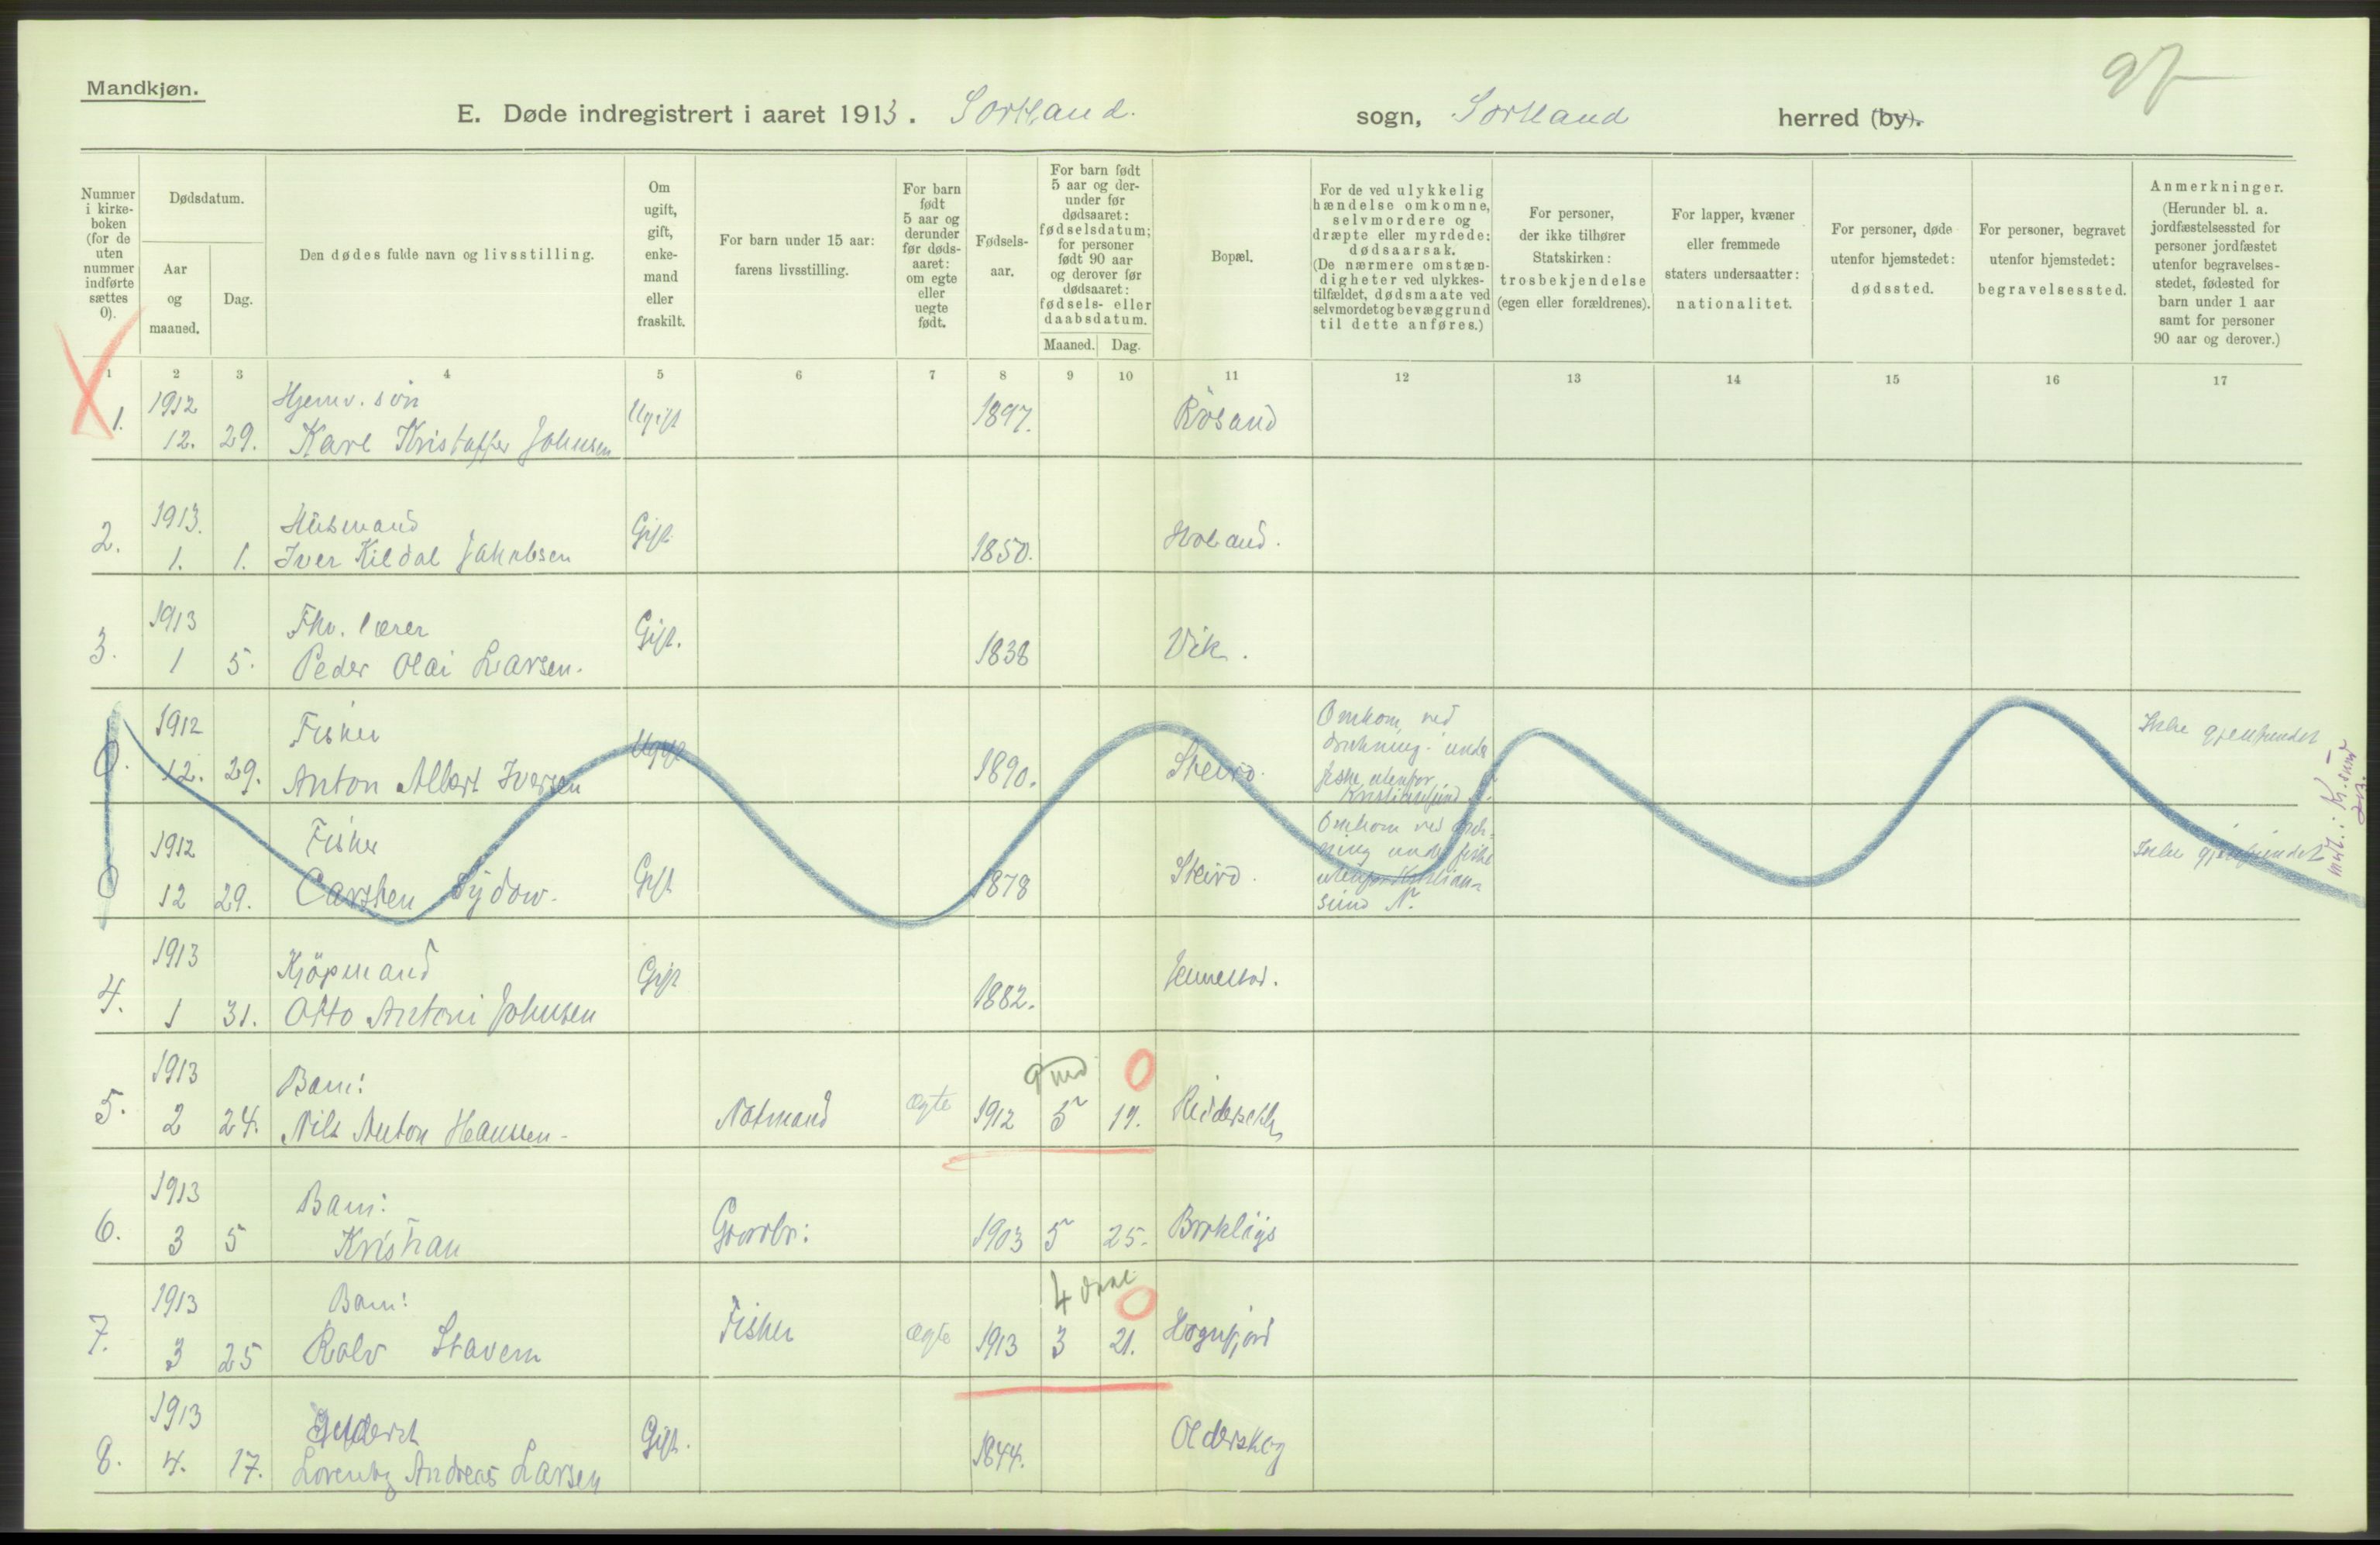 Mandkjøn.
E. Døde indregistrert i aaret 1913. Sortland. sogn, Sortland herred (by).
Nummer i kirke-boken (for de uten nummer indførte sættes 0).
Dødsdatum.
Aar og maaned.
Dag.
Den dødes fulde navn og livsstilling.
Om ugift, gift, enke-mand eller fraskilt.
For barn under 15 aar: farens livsstilling.
For barn født 5 aar og derunder før døds-aaret: om egte eller uegte født.
Fødsels-aar.
For barn født 5 aar og der-under før dødsaaret: fødselsdatum; for personer født 90 aar og derover før dødsaaret: fødsels- eller daabsdatum.
Maaned. Dag.
Bopæl.
For de ved ulykkelig hændelse omkomne, selvmordere og dræpte eller myrdede: dødsaarsak. (De nærmere omstæn-digheter ved ulykkes-tilfældet, dødsmaate ved selvmordet og bevæggrund til dette anføres.)
For personer, der ikke tilhører Statskirken: trosbekjendelse (egen eller forældrenes).
For lapper, kvæner eller fremmede staters undersaatter: nationalitet.
For personer, døde utenfor hjemstedet: dødssted.
For personer, begravet utenfor hjemstedet: begravelsessted.
Anmerkninger. (Herunder bl. a. jordfæstelsessted for personer jordfæstet utenfor begravelses-stedet, fødested for barn under 1 aar samt for personer 90 aar og derover.)
1 2 3 4 5 6 7 8 9 10 11 12 13 14 15 16 17
1912 Hjemv. søn Ugift 1897. Røsand
1. 12. 29. Karl Kristoffer Johnsen
1913. Husmand Gift
2. 1. 1. Iver Kildal Jakobsen 1850. Holand.
1913 Fhv. lærer Gift.
3. 1 5. Peder Olai Larsen. 1838 Vik.
1912 Fisker Ugift Omkom ved Ikke gjenfundet
0. 12. 29. Anton Albert Iversen 1890. Steirø. drukning under
fiske utenfor
Kristiansund N.
1912 Fisker Omkom ved druk-
0 12 29. Carsten Sydow. Gift 1878 Steirø. ning under fiske Ikke gjenfundet
utenfor Kristian-
sund N.
1913 Kjöpmand Gift
4. 1 31. Otto Antoni Johnsen 1882. Jennestad.
1913 Barn: 9 md 0
5. 2 24. Nils Anton Hansen Notmand ægte 1912 5 19.
1913 Barn:
6. 3 5 Kristian Gaardbr: 1903 5 25.
1913 Barn: 4 dage 0
7. 3 25 Rolv Stavem Fisker ægte 1913 3 21. Hognfjord
1913 Gift.
8. 4. 17. Lorentz Andreas Larsen 1844. Olderskog